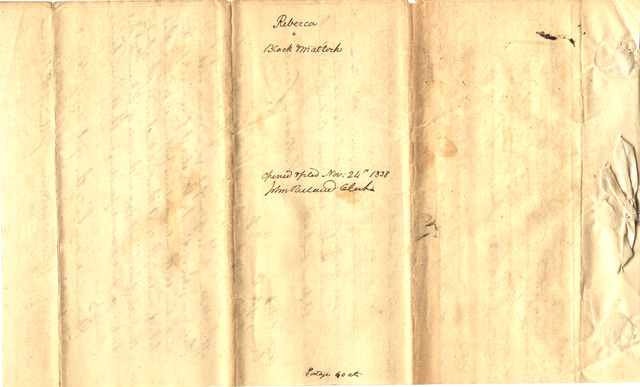 Rebecca
Black Matlock
opened & filed Nov: 24th 1838
John Clerk
Postage 40 cts